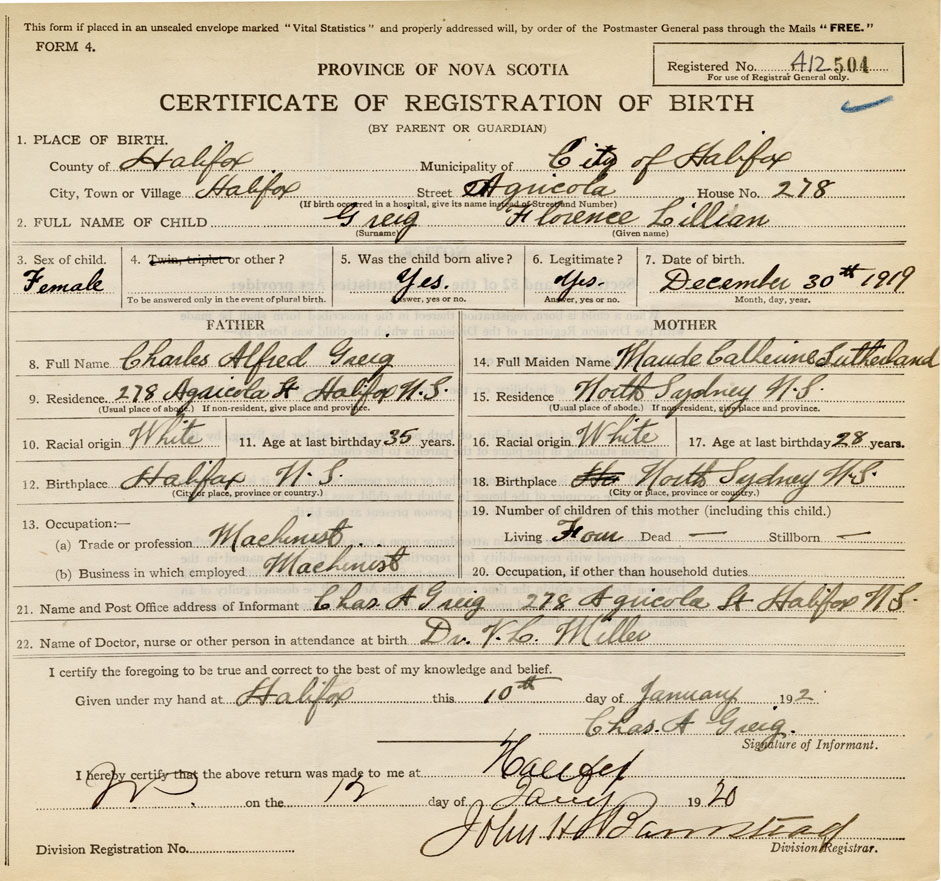 This form if placed in an unsealed envelope marked "Vital Statistics" and properly addressed will, by order of the Postmaster General pass through the Mails "FREE."
FORM 4.
Registered No. 412 504
For use of Registrar General only.
PROVINCE OF NOVA SCOTIA
CERTIFICATE OF REGISTRATION OF BIRTH
(BY PARENT OR GUARDIAN)
1. PLACE OF BIRTH.
County of Halifax Municipality of City of Halifax
City, Town or Village Halifax Street Agricola House No. 278
(If birth occurred in a hospital, give its name instead of Street and Number)
2. FULL NAME OF CHILD Greig Florence Lillian
(Surname) (Given name)
3. Sex of child. 4. Twin, triplet or other? 5. Was the child born alive? 6. Legitimate? 7. Date of birth.
Female Yes. Yes. December 30th 1919
To be answered only in the event of plural birth. Answer, yes or no. Answer, yes or no. Month, day, year.
FATHER MOTHER
8. Full Name Charles Alfred Greig 14. Full Maiden Name Maude Catherine Sutherland
9. Residence 278 Agricola St Halifax N.S. 15. Residence North Sydney N.S.
(Usual place of abode.) If non-resident, give place and province. (Usual place of abode.) If non-resident, give place and province.
10. Racial origin White 11. Age at last birthday 35 years. 16. Racial origin White 17. Age at last birthday 28 years.
12. Birthplace Halifax N.S. 18. Birthplace Ha North Sydney N.S.
(City or place, province or country.) (City or place, province or country.)
13. Occupation:— 19. Number of children of this mother (including this child.)
(a) Trade or profession Machinist Living Four Dead — Stillborn —
(b) Business in which employed Machinist 20. Occupation, if other than household duties
21. Name and Post Office address of Informant Chas A Greig 278 Agricola St Halifax N.S.
22. Name of Doctor, nurse or other person in attendance at birth Dr. V. L. Miller
I certify the foregoing to be true and correct to the best of my knowledge and belief.
Given under my hand at Halifax this 10th day of January 192
Chas. A Greig.
Signature of Informant.
I hereby certify that the above return was made to me at Halifax
on the 12 day of Jany 1920
John H Barnstead
Division Registration No. Division Registrar.